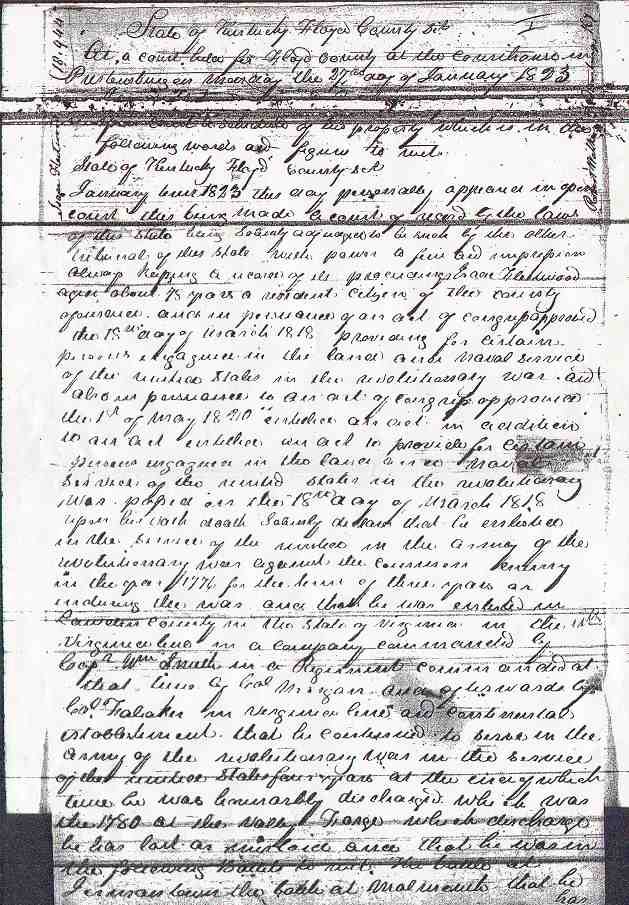 State of Kentucky Floyd County Sct
I
At a court held for Floyd County at the courthouse in
Prestonsburg on Monday the 27th day of January 1823
following words and figures to wit
State of Kentucky Floyd County Sct
January term 1823 this day personally appeared in open
court this being made a court of record by the laws
of this State being solemnly adjudged to be such by the other
tribunal of this State with power to fine and imprison
always keeping a record of its proceedings Isaac Fleetwood
aged about 78 years a resident citizen of the county
aforesaid and in persuance of an act of congress approved
the 18th day of March 1818 providing for certain
persons engaged in the land and naval service
of the united States in the revolutionary war and
also in persuance to an act of congress approved
the 1st of May 1820 entitled an act in addition
to an act entitled an act to provide for certain
persons engaged in the land and naval
Services of the united states in the revolutionary
war passed on the 18th day of March 1818
upon his oath doath Solemnly declare that he enlisted
in the service of the united in the army of the
revolutionary war against the common enemy
in the year 1776 for the term of three years or
enduring the war and that he was enlisted in
county in the State of Virginia in the
Virginia line in a company commanded by
Capt Wm Smith in a Regiment commanded at
that time by Col Morgan and afterwards by
Col in Virginia line and continental
establishment that he continued to serve in the
army of the revolutionary war in the service
of the united States four years at the end of which
time he was honorably discharged which was
the 1780 at the Valley Forge which discharge
he has lost or mislaid and that he was in
the following Battles to wit The battle at
Jermantown the battle at Monmouth that he
has